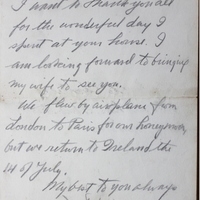 I want to thank you all
for the wonderful day I
spent at your house. I
am looking forward to bringing
my wife to see you.
We flew by airplane from
London to Paris for our honeymoon,
but we return to Ireland the
14 of July.
My best to you always